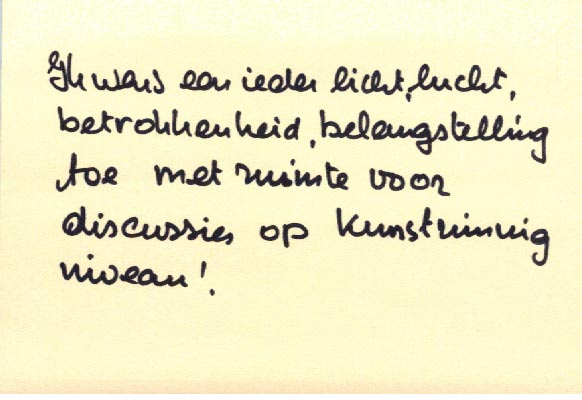 Ik wens een ieder licht, lucht,
betrokkenheid, belangstelling
toe met ruimte voor
discussies op kunstzinnig
niveau!